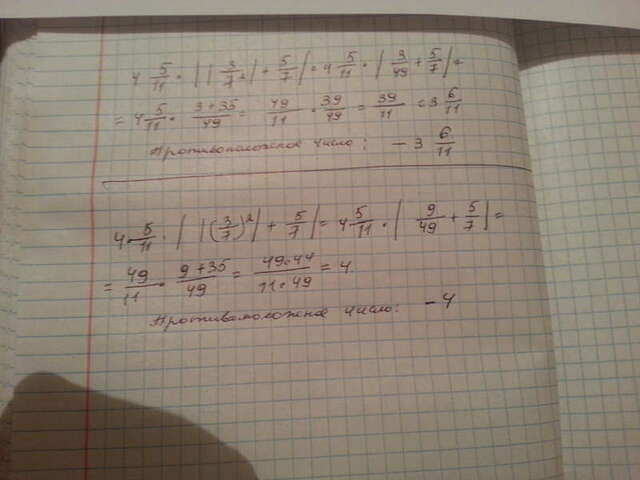 4 5/11 · | | 3/7² | + 5/7 | = 4 5/11 · | 3/49 + 5/7 | =
= 4 5/11 · (3+35)/49 = 49/11 · 39/49 = 39/11 = 3 6/11
Противоположное число: − 3 6/11
4 · 5/11 · | |(3/7)²| + 5/7 | = 4 5/11 · | 9/49 + 5/7 | =
= 49/11 · (9+35)/49 = (49·44)/(11·49) = 4.
Противоположное число: −4